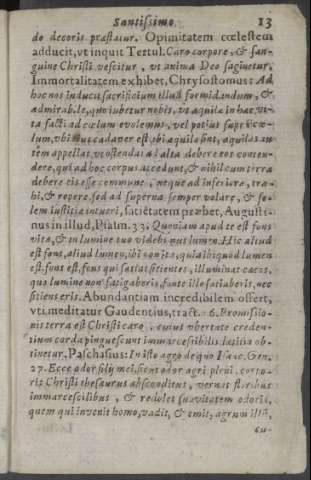 Santissimo. 13
do decoris præstatur. Opimitatem cœlestem
adducit, vt inquit Tertul. Caro corpore, & san-
guine Christi vescitur, vt anima Deo saginetur.
Immortalitatem exhibet, Chrysostomus: Ad
hoc nos inducit sacrificium illud formidandum, &
admirabile, quo iubetur nobis, vt aquilæ in hac vi-
ta facti ad cælum evolemus, vel potius supra cœ-
lum, vbi enim cadaver est ibi aquilæ sunt, aquilas au-
tem appellat, vt ostendat ad alta debere eos conten-
dere, qui ad hoc corpus accedunt, & nihil cum terra
debere eis esse commune, neque ad inferiora, tra-
hi, & repere, sed ad superna semper volare, & so-
lem Iustitiæ intueri, satietatem præbet, Augusti-
nus in illud, Psalm. 35. Quoniam apud te est fons
vitæ, & in lumine tuo videbimus lumen. Hic aliud
est fons, aliud lumen, ibi non ita, quia ibi quod lumen
est, fons est, fons qui satiat sitientes, illuminat cæcos,
quo lumine non fatigaberis, fonte illo satiaberis, nec
sitiens eris. Abundantiam incredibilem offert,
vti meditatur Gaudentius, tract. 16. Promissio-
nis terra est Christi caro, cuius vbertate creden-
tium corda pinguescunt immarcessibilis lætitia ob-
tinetur. Paschasius: In isto agro de quo Isaac. Gen.
27. Ecce odor filij mei sicut odor agri pleni, corpo-
ris Christi thesaurus absconditus, vernis floribus
immarcescilibus, & redolet suavitatem odoris,
quem qui invenit homo, vadit, & emit, agrum illũ,
cu-